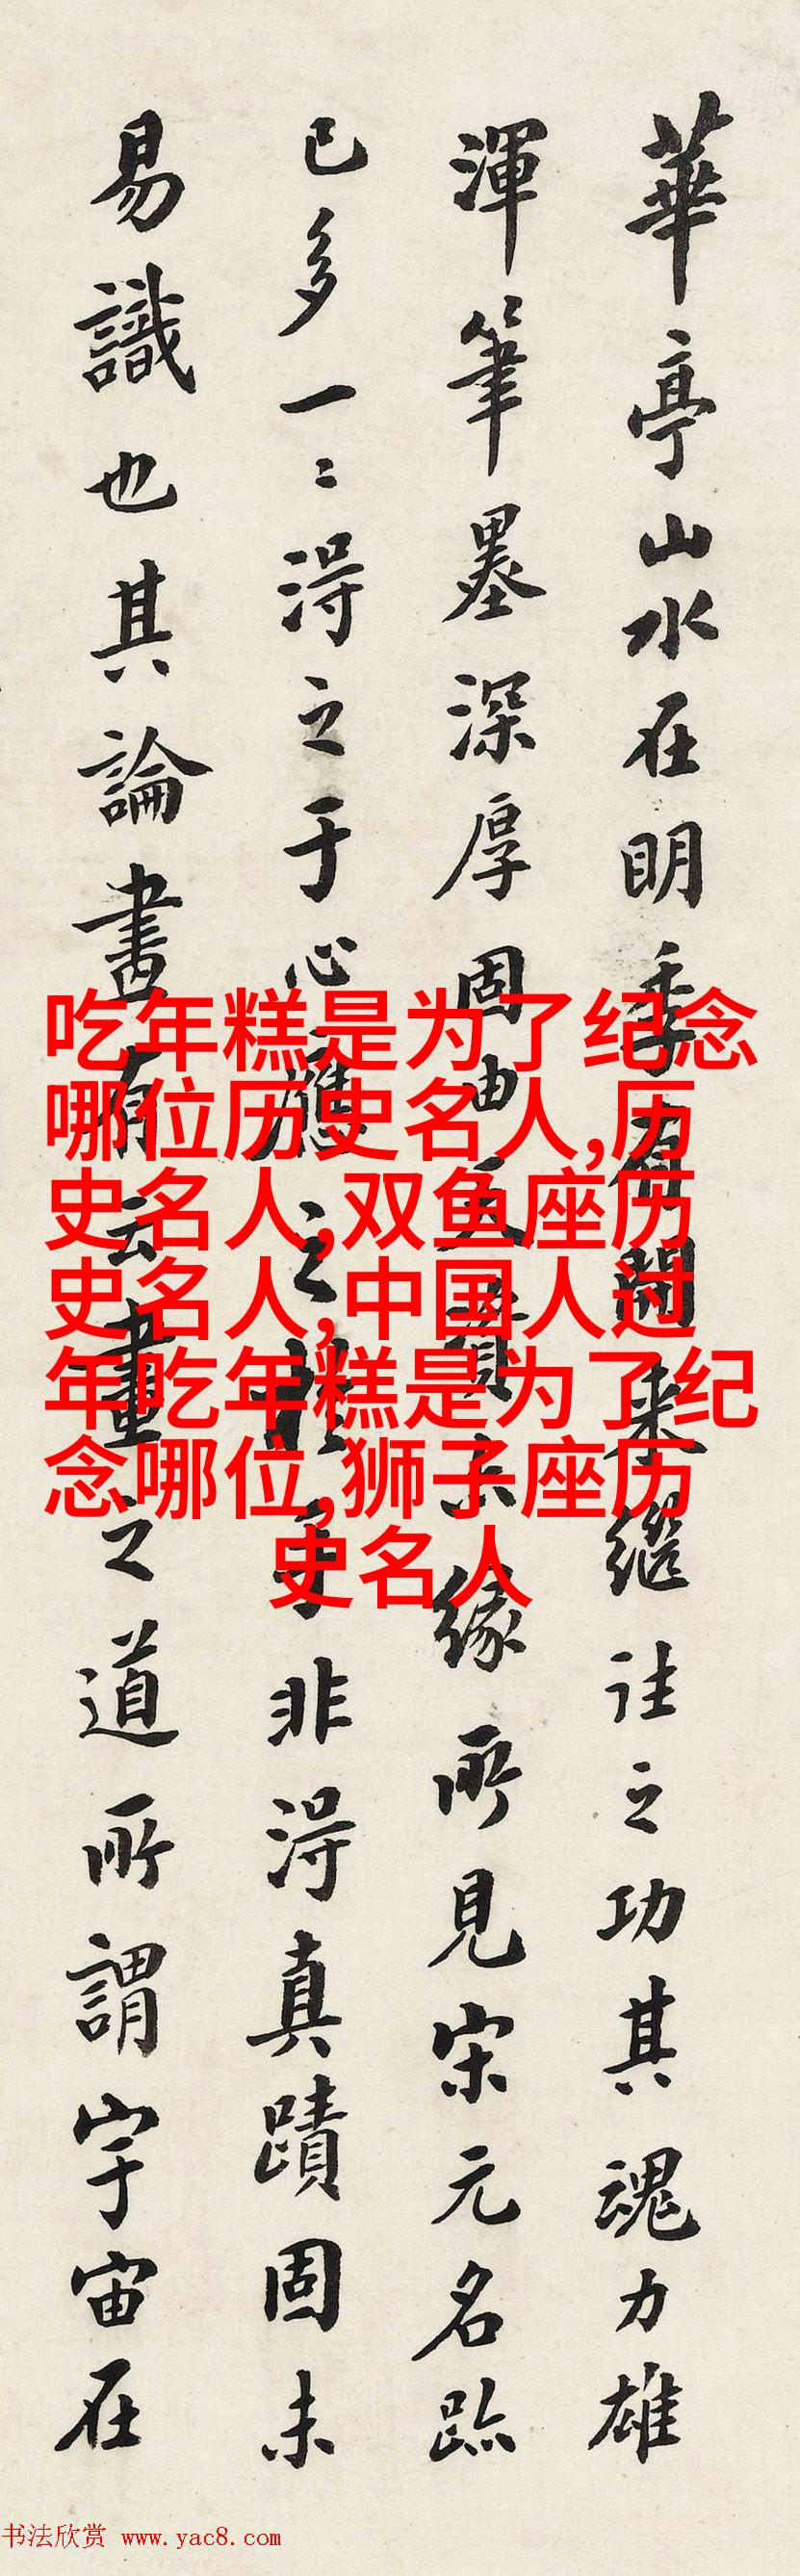 華亭山水在明季有開來繼往之功其魂力雄
渾筆墨深厚固由天資亦緣所見宋元名跡
已多一〻得之于心應之於手非得真蹟固未
易識也其論畫有云畫之道所謂宇宙在
吃年糕是为了纪念
哪位历史名人,历
史名人,双鱼座历
史名人,中国人过
年吃年糕是为了纪
念哪位,狮子座历
史名人
书法欣赏 www.yac8.com